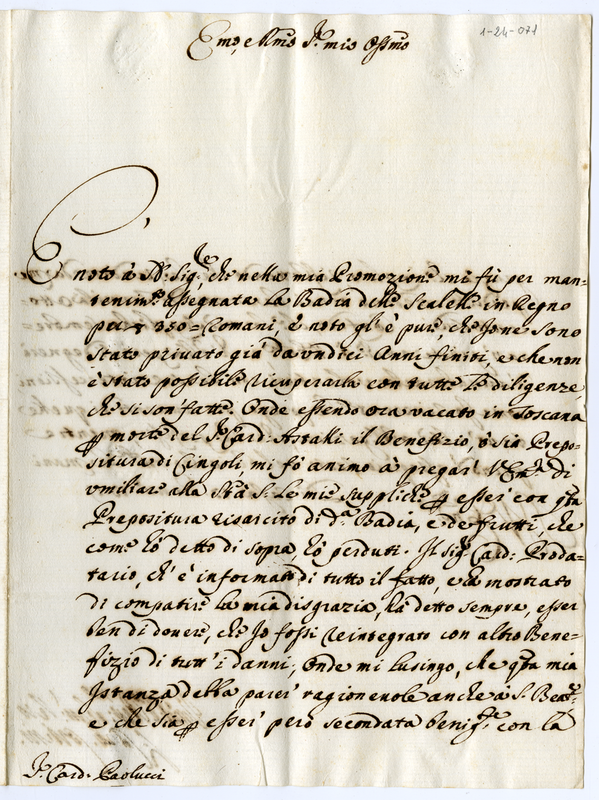 1-24-071
Emo, e Rmo Sr mio Ossmo
È noto à N. Sigre, che nella mia Promozione mi fù per man=
tenimto assegnata la Badia delle Scalelle in Regno
per 350= Romani, è noto gl'è pure, che Io ne sono
stato privato già da undici Anni finiti, e che non
è stato possibile ricuperarla con tutte le diligenze,
che si son' fatte. Onde essendo ora vacato in Toscana
p morte del Sr Card: Astalli il Benefizio, ò sia Prepo=
situra di Cingoli, mi fò animo à pregar' V Emza di
umiliare alla Sta S. Le mie suppliche p esser' con qta
Prepositura risarcito di da Badia, e de frutti, che
come hò detto di sopra, hò perduti. Il Sigr Card: Proda=
tario, ch' è informato di tutto il fatto, e hà mostrato
di compatire la mia disgrazia, hà detto sempre, esser
ben di dovere, che Io fossi reintegrato con altro Bene=
fizio di tutt' i danni, Onde mi lusingo, che qta mia
Istanza debba parer' ragionevole anche à S. Beatne
e che sia p esser' però secondata benigte con la
Sr Card: Paolucci